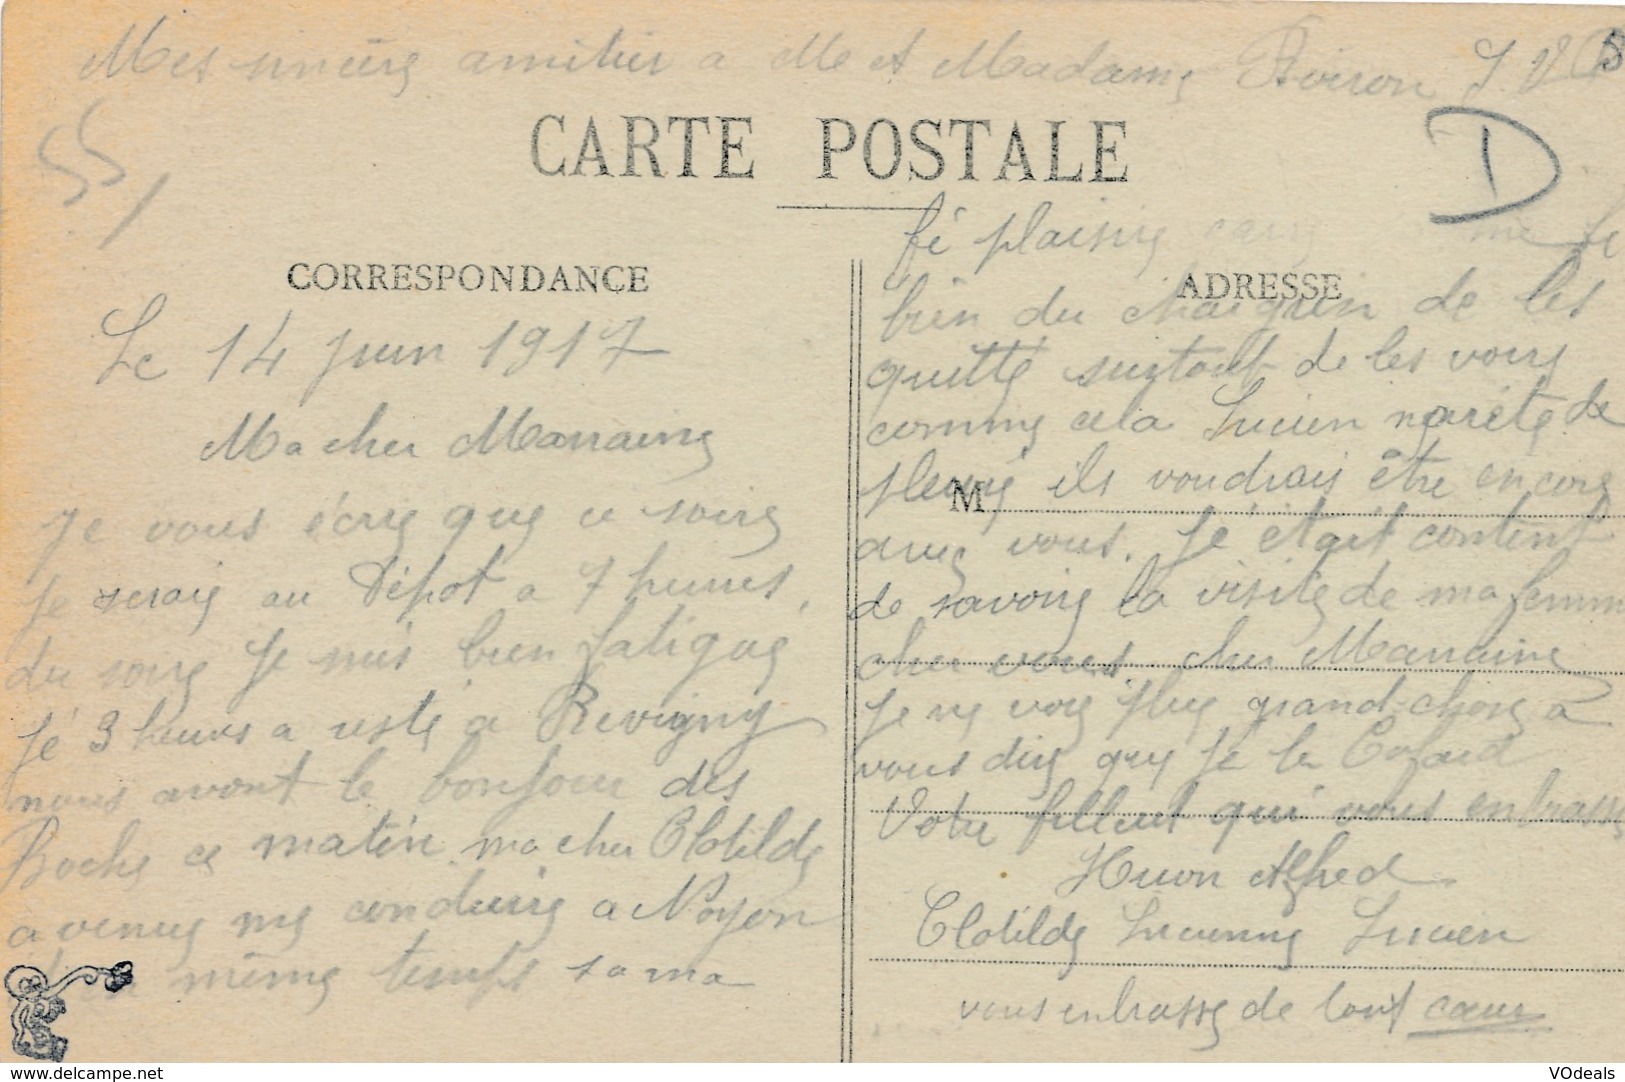 Mes sincère amitier a M et Madame Voiron J. V
55,
D
CARTE POSTALE
CORRESPONDANCE
Le 14 juin 1917
Ma cher Marraine
Je vous écrie que ce soire
Je serais au Dépot a 7 heures,
du soire Je suis bien fatigué
Jé 3 heures a resté a Revigny
nous avont le bonjour des
Boche ce matin. ma cher Clotilde
a venue me conduire a Noyon
en même temps sa ma
fé plaisire
ADRESSE
bien du chaigrin de les
quitté surtout de les voire
comme cela Lucien n'arète de
pleuré ils voudrais être encore
M
avec vous. Jé était content
de savoire la visite de ma femm
cher vous. cher Marraine
Je ne voie plus grand chose a
vous dire que Jé le Cafard
Votre filleul qui vous enbrasse
Huon Alfred
Clotilde Lucienne Lucien
vous enbrasse de tout coeur
https://www.delcampe.net
VOdeals